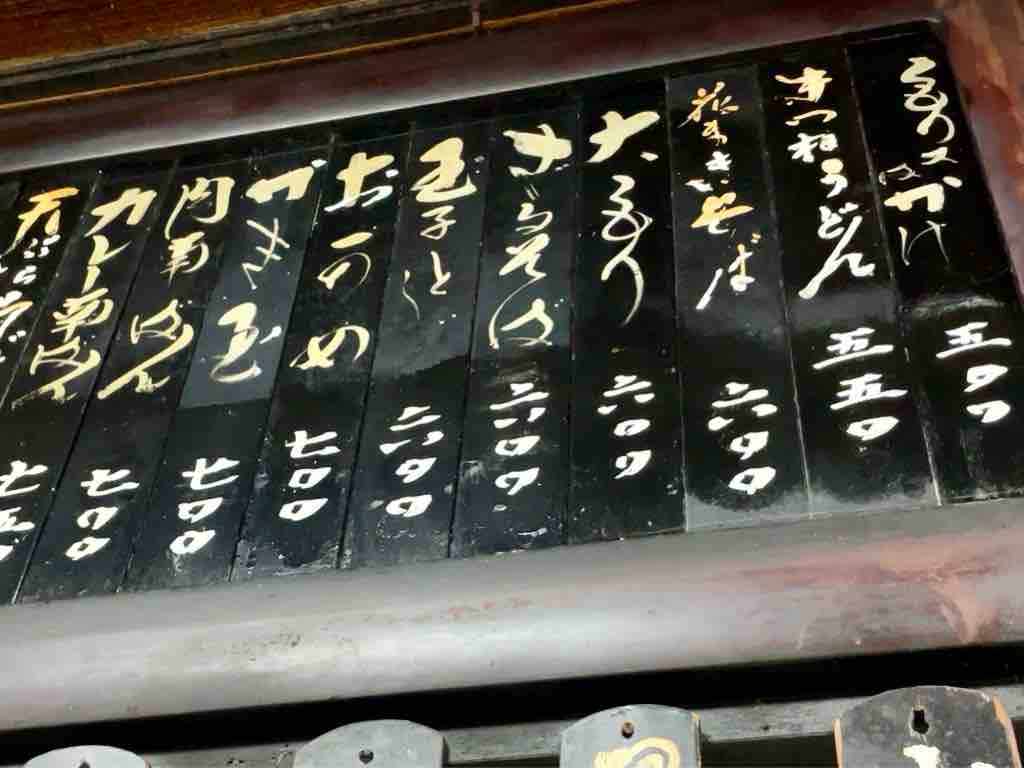 もり又はかけ 五〇〇
きつねうどん 五五〇
花まきそば 六〇〇
大もり 六〇〇
ざるそば 六〇〇
玉子とじ 六〇〇
おかめ 七〇〇
かき玉 七〇〇
肉南ばん 七〇〇
カレー南ばん 七〇〇
七五〇